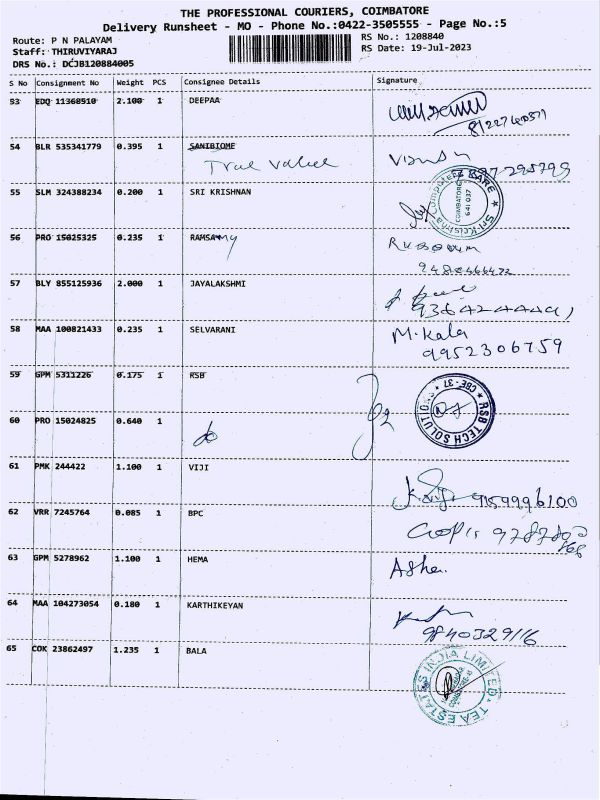 THE PROFESSIONAL COURIERS, COIMBATORE
Delivery Runsheet - MO - Phone No.:0422-3505555 - Page No.:5
Route: P N PALAYAM RS No.: 1208840
Staff: THIRUVIYARAJ RS Date: 19-Jul-2023
DRS No.: DCJB120884005
S No Consignment No Weight PCS Consignee Details Signature
53 EDQ 11368510 2.100 1 DEEPAA
54 BLR 535341779 0.395 1 SANIBIOME
True Value
55 SLM 324388234 0.200 1 SRI KRISHNAN
COIMBATORE 641 037 Sri Krishna Computer
56 PRO 15025325 0.235 1 RAMSAMY
57 BLY 855125936 2.000 1 JAYALAKSHMI
58 MAA 100821433 0.235 1 SELVARANI M.Kala
9952306759
59 GPM 5311226 0.175 1 RSB
RSB TECH SOLUTIONS CBE-37
60 PRO 15024825 0.640 1
do
61 PMK 244422 1.100 1 VIJI
9159996100
62 VRR 7245764 0.085 1 BPC
63 GPM 5278962 1.100 1 HEMA Asha.
64 MAA 104273054 0.180 1 KARTHIKEYAN
9840329116
65 COK 23862497 1.235 1 BALA
TEA ESTATES INDIA LIMITED